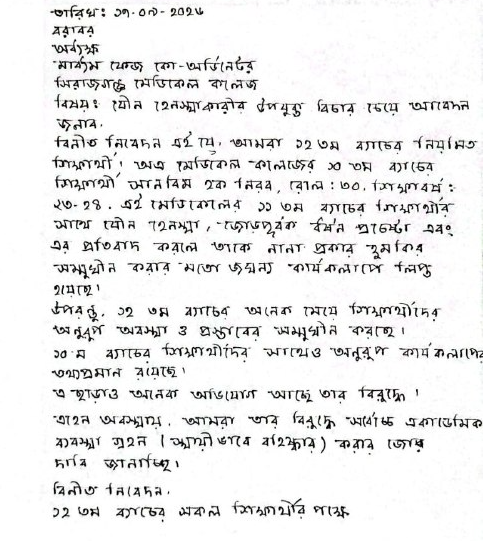 তারিখ: ১৭-০৭-২০২৬
বরাবর
অধ্যক্ষ
মাধ্যম ফেজ কো-অর্ডিনেটর
সিরাজগঞ্জ মেডিকেল কলেজ
বিষয়: যৌন হেনস্থাকারীর উপযুক্ত বিচার চেয়ে আবেদন
জনাব,
বিনীত নিবেদন এই যে, আমরা ১২ তম ব্যাচের নিয়মিত
শিক্ষার্থী। অত্র মেডিকেল কলেজের ১০ তম ব্যাচের
শিক্ষার্থী হক রোল: ৩০, শিক্ষাবর্ষ:
২৩-২৪. এই মেডিকেলের ১১ তম ব্যাচের শিক্ষার্থীর
সাথে যৌন হেনস্থা, জোড়পূর্বক ধর্ষন প্রচেষ্টা এবং
এর প্রতিবাদ করলে তাকে নানা প্রকার হুমকির
সম্মুখীন করার মতো জঘন্য কার্যকলাপে লিপ্ত
হয়েছে।
উপরন্তু, ১২ তম ব্যাচের অনেক মেয়ে শিক্ষার্থীদের
অনুরূপ অবস্থা ও প্রস্তাবের সম্মুখীন করছে।
১০ম ব্যাচের শিক্ষার্থীদের সাথেও অনুরূপ কার্যকলাপের
তথ্যপ্রমান রয়েছে।
এ ছাড়াও অনেক অভিযোগ আছে তার বিরুদ্ধে।
এহেন অবস্থায়, আমরা তার বিরুদ্ধে সর্বোচ্চ একাডেমিক
ব্যবস্থা গ্রহন (স্থায়ীভাবে বহিষ্কার) করার জোর
দাবি জানাচ্ছি।
বিনীত নিবেদন,
১২ তম ব্যাচের সকল শিক্ষার্থীর পক্ষে